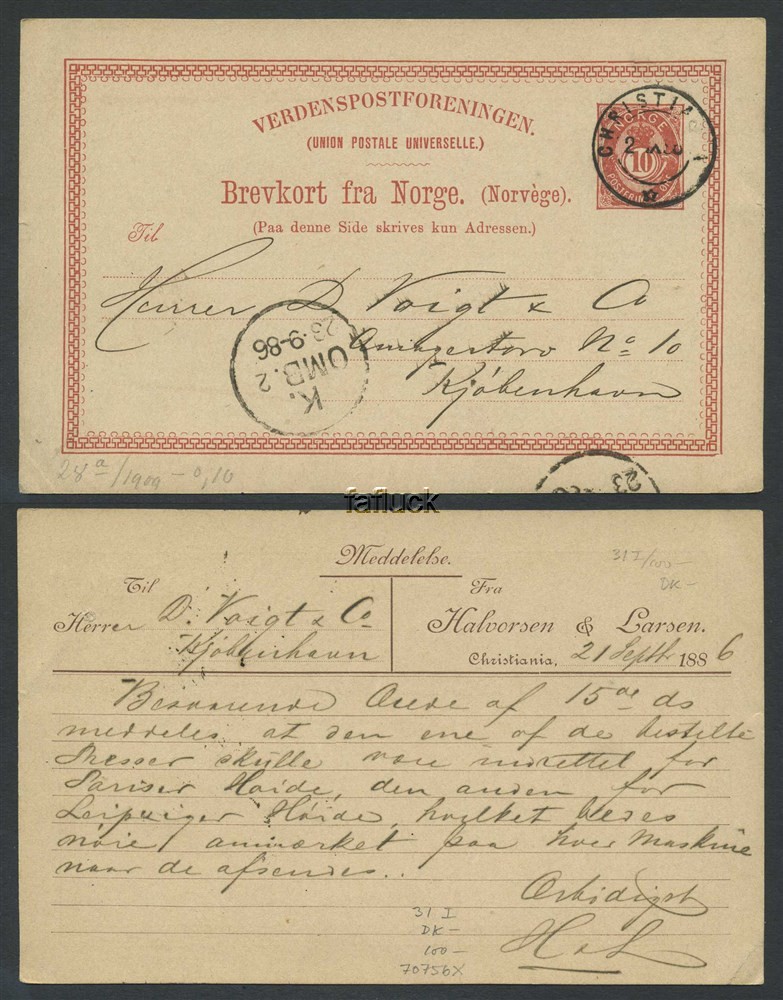 VERDENSPOSTFORENINGEN.
(UNION POSTALE UNIVERSELLE.)
Brevkort fra Norge. (Norvège).
(Paa denne Side skrives kun Adressen.)
NORGE
10
POSTFRIM. ØRE
CHRISTIA
2
Til
Herrer D. Voigt & Co
No 10
Kjöbenhavn
K.
OMB. 2
23-9-86
23
28a/1909 - 0,10
fafluck
Meddelelse.
31 I/100-
DK-
Til
Fra
Herrer D. Voigt & Co
Halvorsen & Larsen.
Kjöbenhavn
Christiania, 21 Septbr 1886
Besvarende Ærede af 15de ds
meddeles at den ene af de bestilte
Presser skulle være indrettet for
Pariser Høide, den anden for
Leipziger Høide, hvilket bedes
nöie anmærket paa hver Maskine
naar de afsendes.
Ærbödigst
H & L
31 I
DK-
100-
70756X